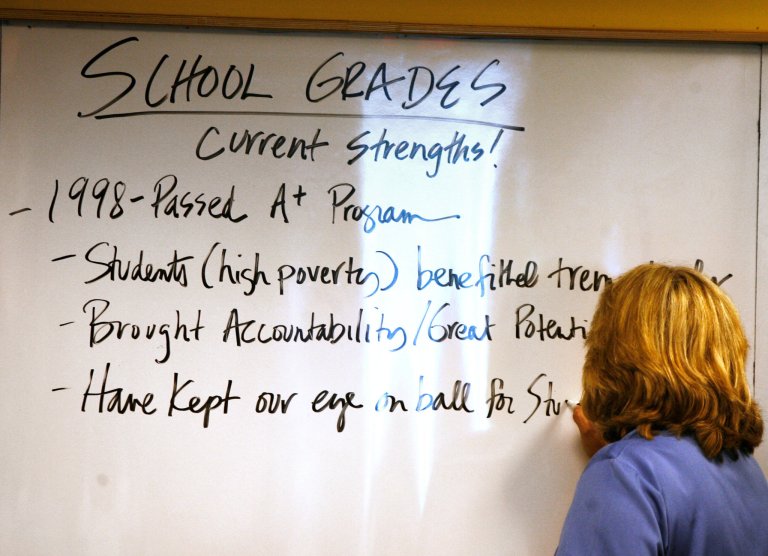 SCHOOL GRADES
Current Strengths!
- 1998-Passed A+ Program
- Students (high poverty) benefitted trem
- Brought Accountability/Great Potenti
- Have Kept our eye on ball for Stu